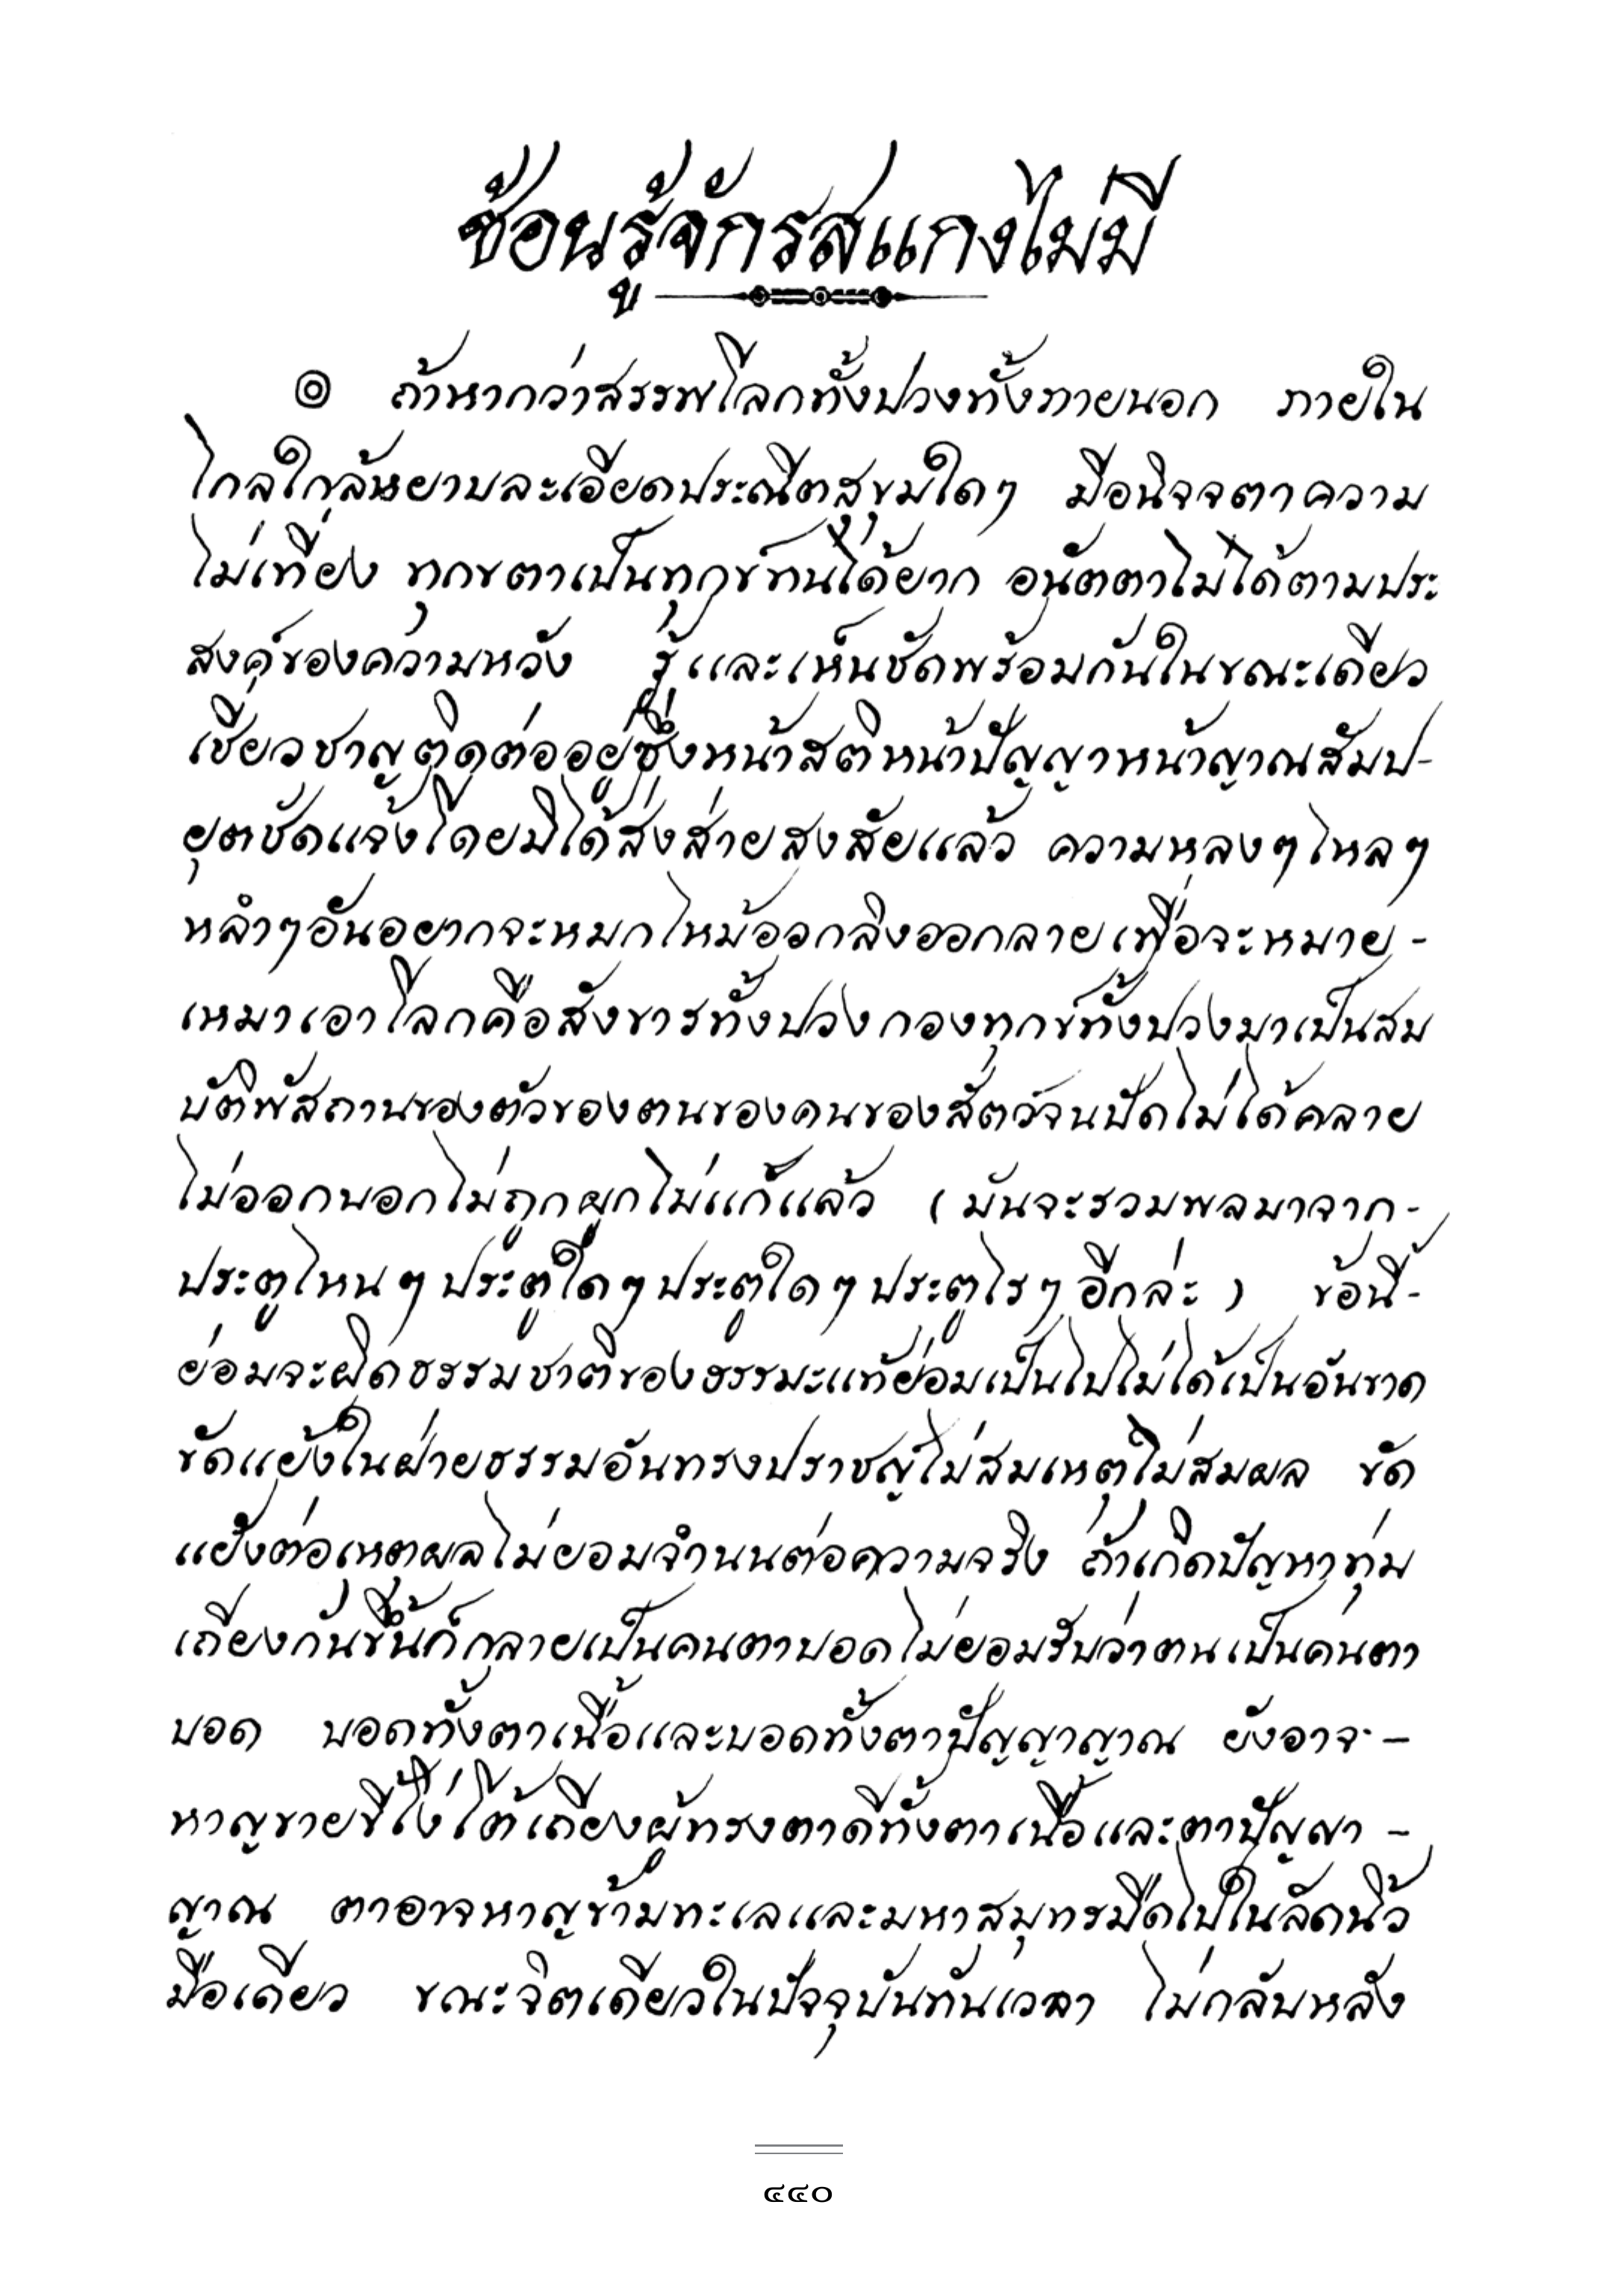 ช้อนรู้จักรสแกงไม่มี
๏ ถ้าหากว่าสรรพโลกทั้งปวงทั้งภายนอก ภายใน
ไกลใกล้หยาบละเอียดประณีตสุขุมใดๆ มีอนิจจตาความ
ไม่เที่ยง ทุกขตาเป็นทุกข์ทนได้ยาก อนัตตาไม่ได้ตามประ
สงค์ของความหวัง รู้และเห็นชัดพร้อมกันในขณะเดียว
เชี่ยวชาญติดต่ออยู่ซึ่งหน้าสติหน้าปัญญาหน้าญาณสัมป-
ยุตชัดแจ้งโดยมิได้ส่งส่ายสงสัยแล้ว ความหลงๆไหลๆ
หลำๆอันอยากจะหมกไหม้ออกลิงออกลายเพื่อจะหมาย-
เหมาเอาโลกคือสังขารทั้งปวงกองทุกข์ทั้งปวงมาเป็นสม
บัติพัสถานของตัวของตนของคนของสัตว์จนปัดไม่ได้คลาย
ไม่ออกบอกไม่ถูกผูกไม่แก้แล้ว (มันจะรวมพลมาจาก-
ประตูไหนๆประตูใดๆประตูใดๆประตูไรๆอีกล่ะ) ข้อนี้-
ย่อมจะผิดธรรมชาติของธรรมะแท้ย่อมเป็นไปไม่ได้เป็นอันขาด
ขัดแย้งในฝ่ายธรรมอันทรงปราชญ์ไม่สมเหตุไม่สมผล ขัด
แย้งต่อเหตุผลไม่ยอมจำนนต่อความจริง ถ้าเกิดปัญหาทุ่ม
เถียงกันขึ้นก็กลายเป็นคนตาบอดไม่ยอมรับว่าตนเป็นคนตา
บอด บอดทั้งตาเนื้อและบอดทั้งตาปัญญาญาณ ยังอาจ-
หาญขายขี้โง่โต้เถียงผู้ทรงตาดีทั้งตาเนื้อและตาปัญญา-
ญาณ ตาอาจหาญข้ามทะเลและมหาสมุทรมืดไปในลัดนิ้ว
มือเดียว ขณะจิตเดียวในปัจจุบันทันเวลา ไม่กลับหลัง
๔๔๐